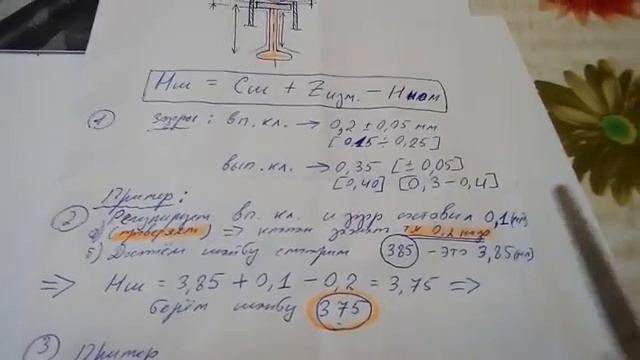 Нш = Сш + Zизм. - Нном
① зазоры: вп. кл. → 0,2 ± 0,05 мм
[0,15 ÷ 0,25]
вып. кл. → 0,35 [± 0,05]
[0,40] [0,3 - 0,4]
Пример:
② Регулируем вп. кл. и зазор 0,1
а) (проверяем) => клапан зажат
б) Достаём шайбу смотрим 385 - это 3,85 (мм)
=> Нш = 3,85 + 0,1 - 0,2 = 3,75 =>
берём шайбу 375
③ Пример